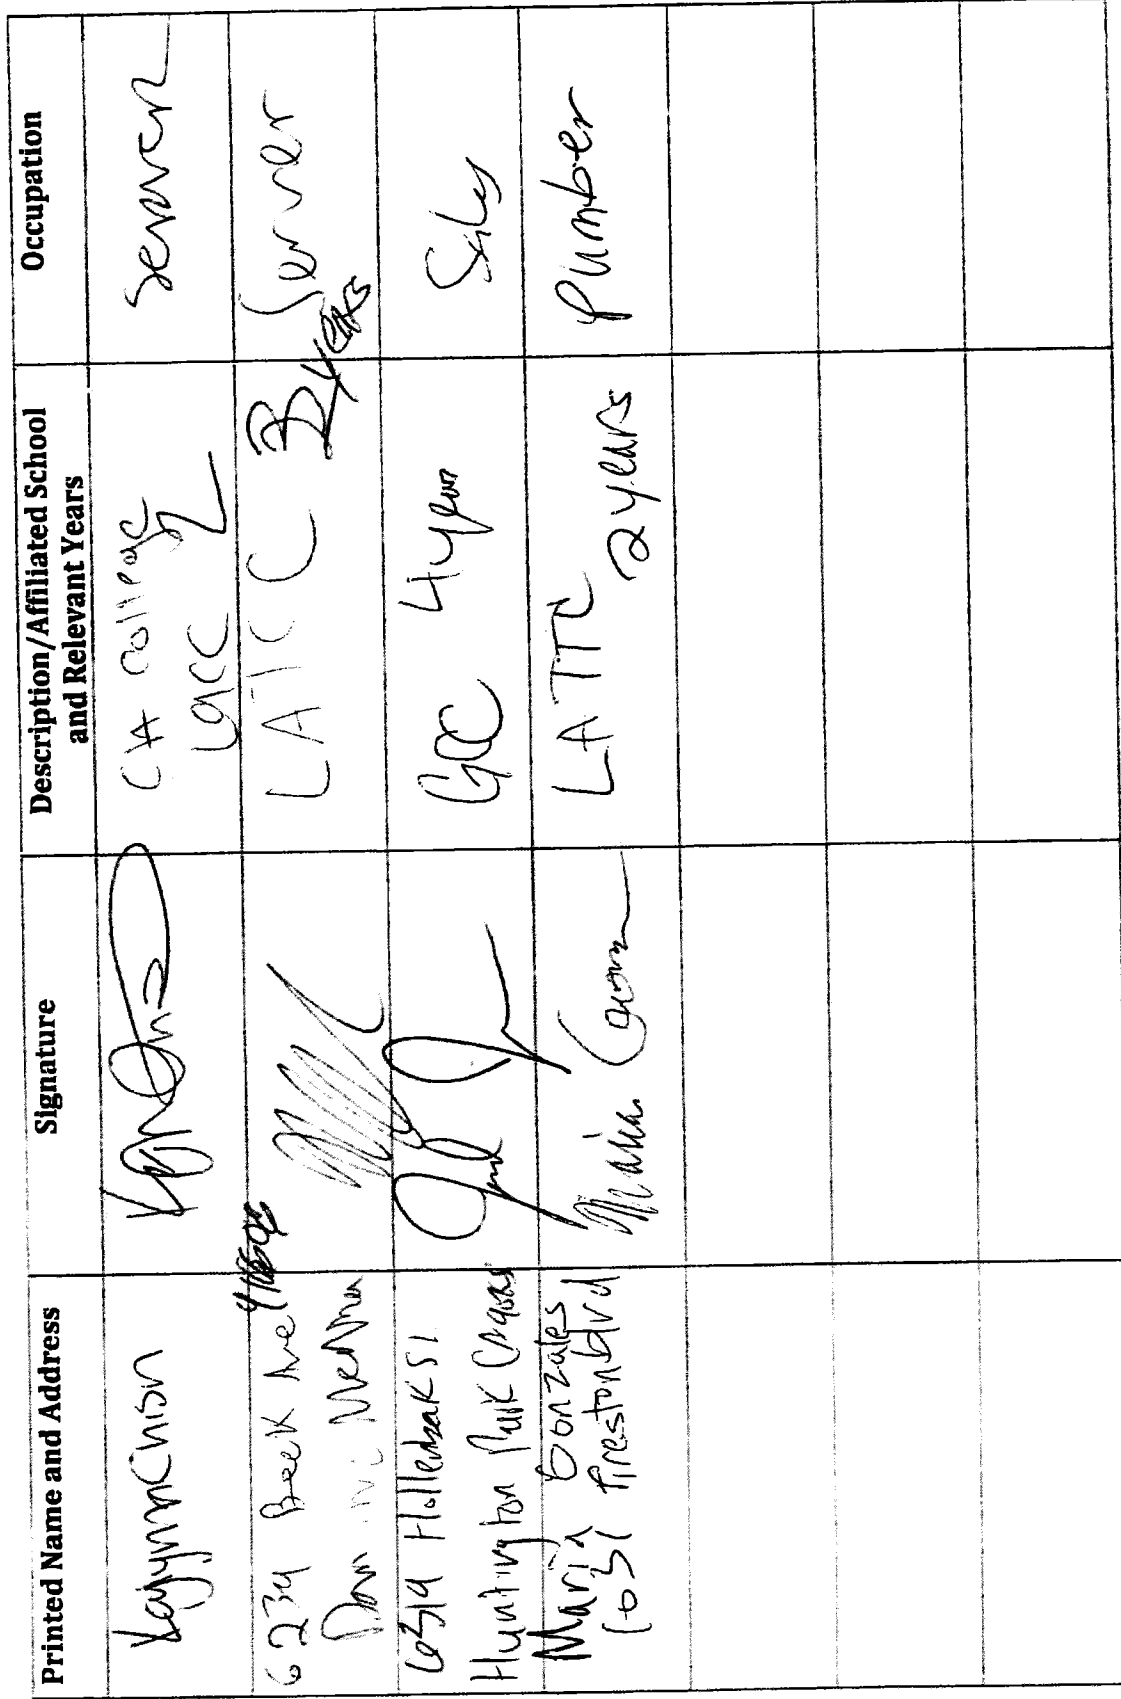 Printed Name and Address
Signature
Description/Affiliated School
and Relevant Years
Occupation
CIA college
server
6234 Beck Ave 91606
LATCC 3 years
Server
6319 Hollenbeck St
Huntington Park CA 90255
GCC 4 year
Sales
Maria Gonzales
1031 Firestonblvd
Maria
LATTC
2 years
Plumber